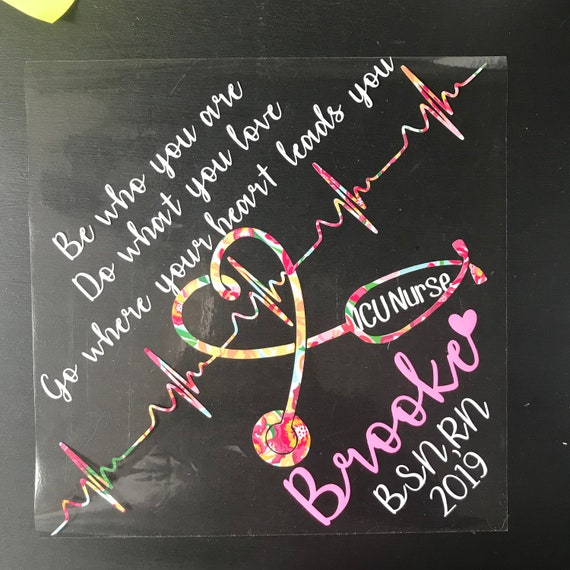 Be who you are
Do what you love
Go where your heart leads you
ICU Nurse
Brooke
BSN, RN
2019